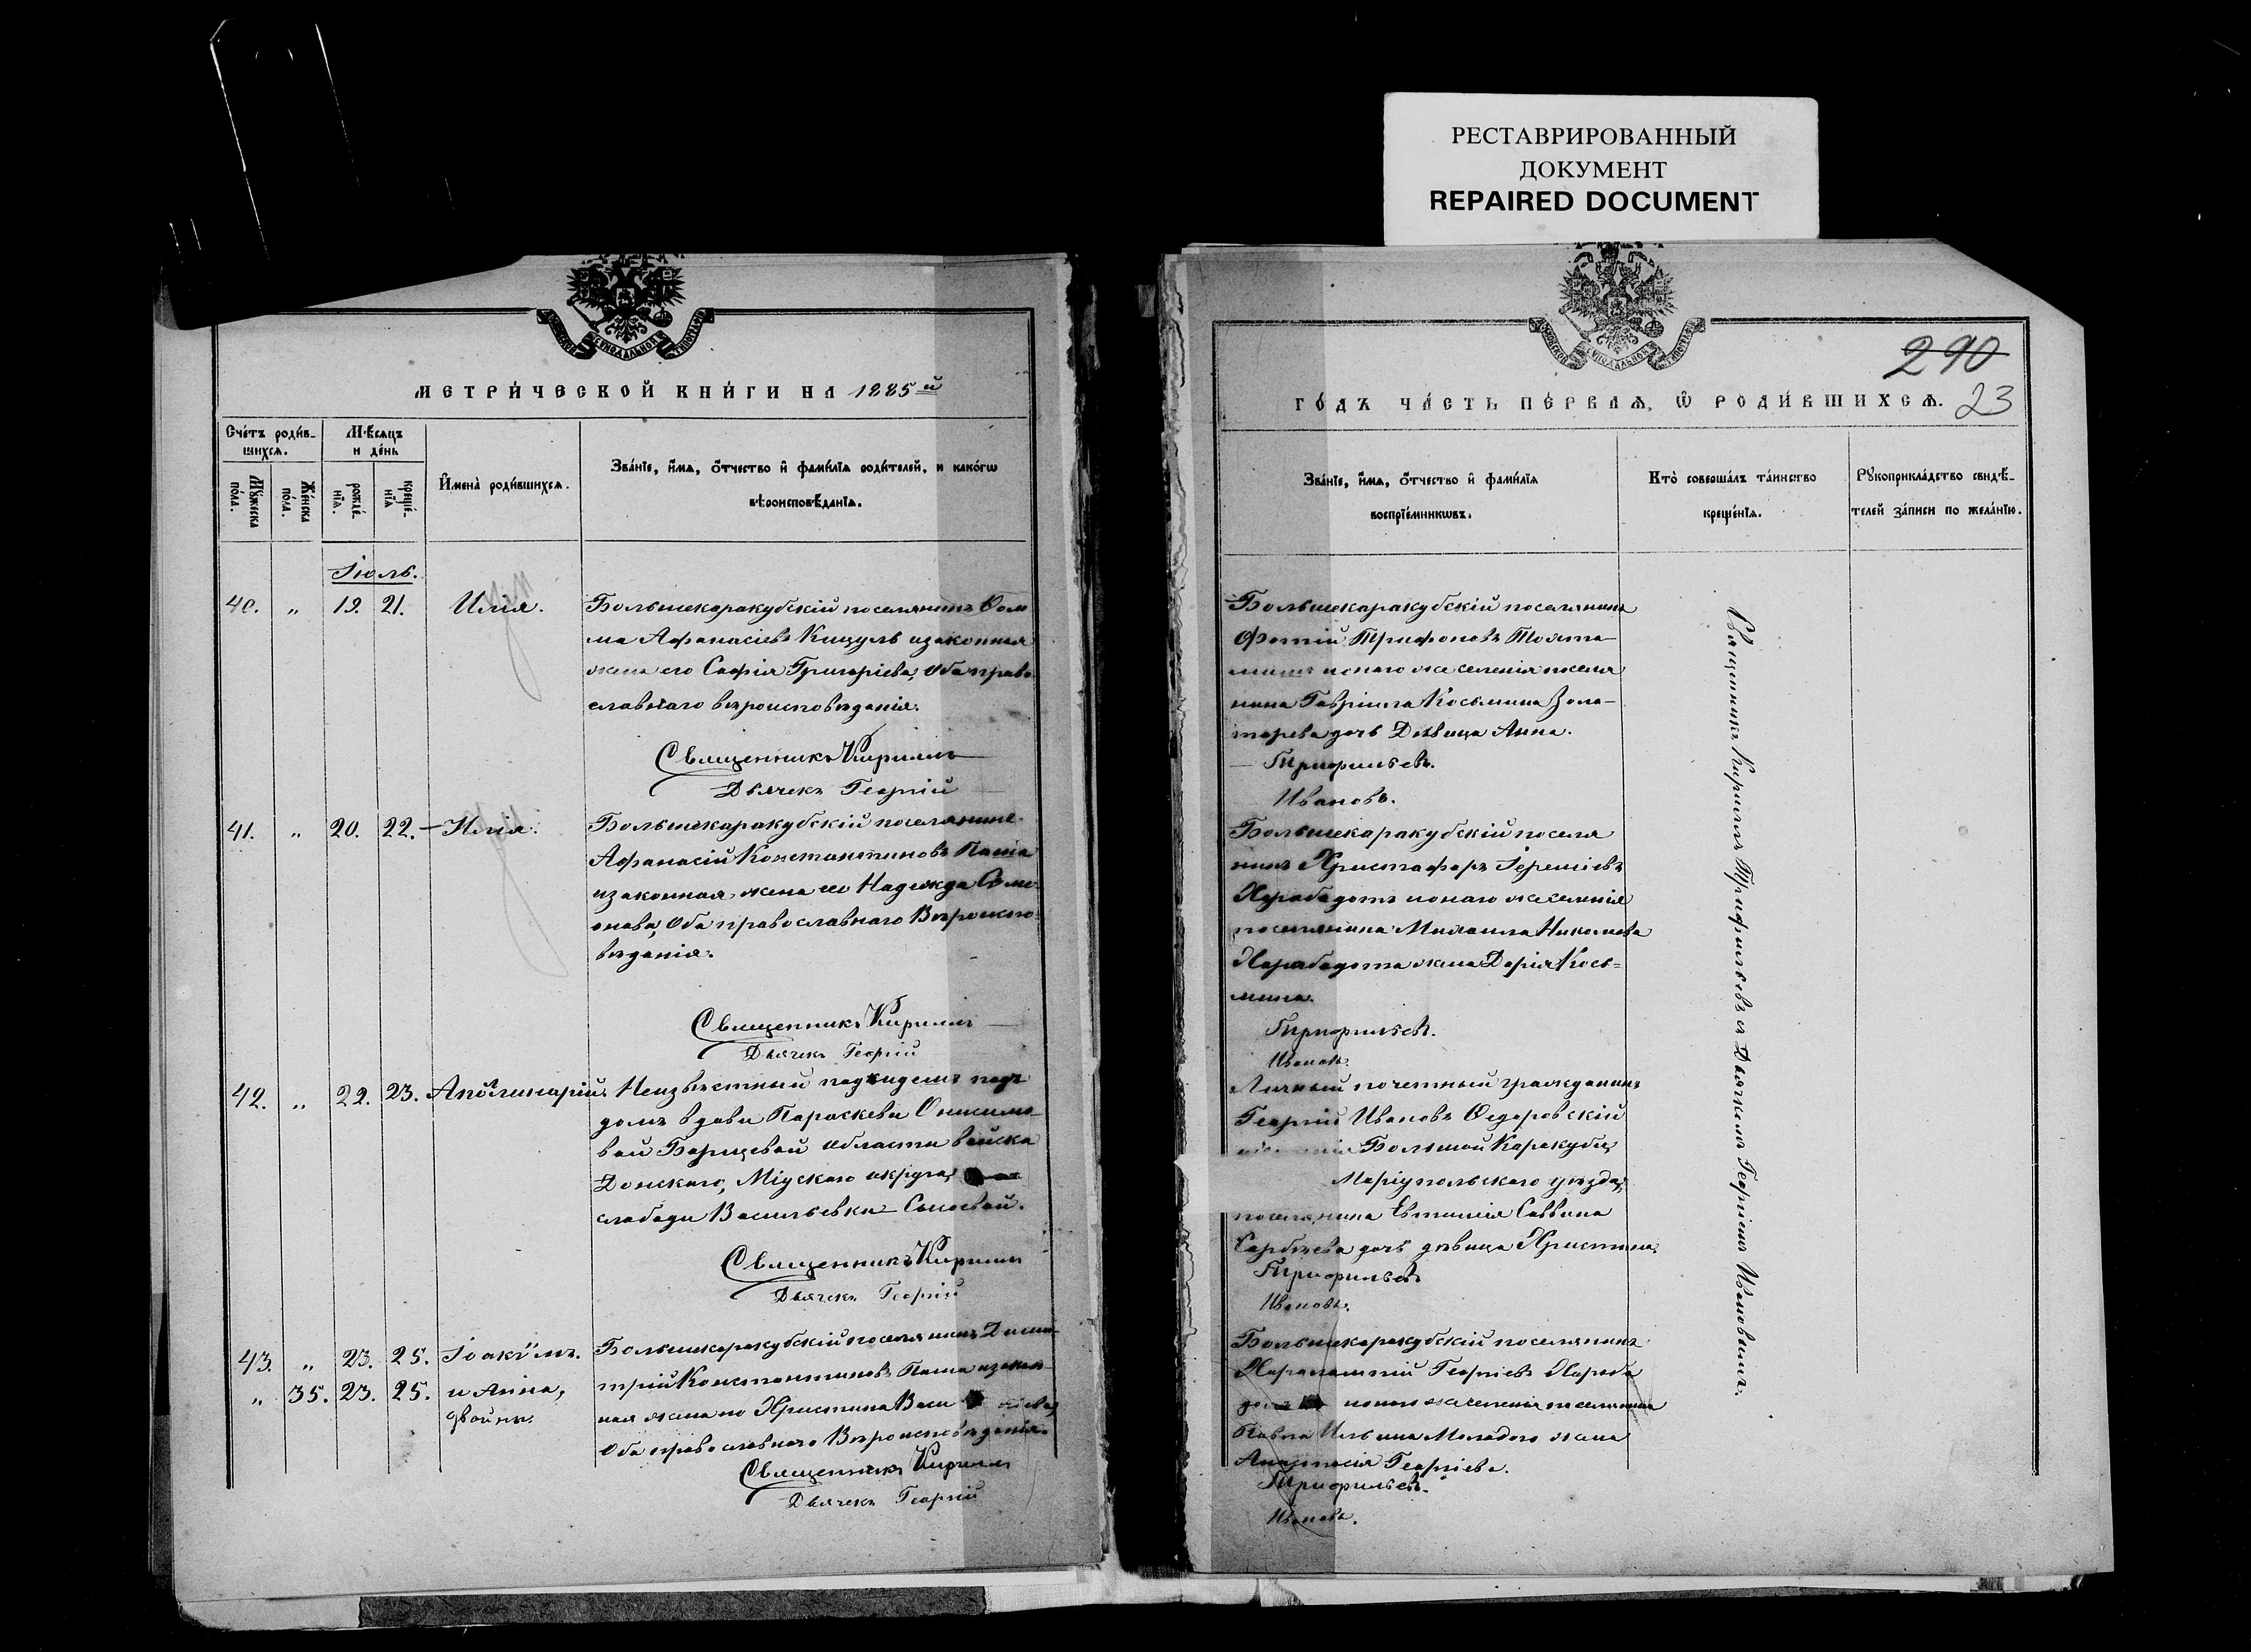 РЕСТАВРИРОВАННЫЙ
ДОКУМЕНТ
REPAIRED DOCUMENT
МЕТРИ́ЧЕСКОЙ КНИ́ГИ НА 1885й
Сче́тъ роди́в-
шихсѧ.
Мѣ́сѧцъ
и де́нь
Мꙋ́жеска
по́ла.
Же́нска
по́ла.
рожде́-
нїѧ.
креще́-
нїѧ
И҆мена̀ роди́вшихсѧ.
Зва́нїе, и҆́мѧ, ѻ҆́тчество и҆ фами́лїѧ роди́телей, и како́гѡ
вѣроисповѣ́данїѧ.
Іюль.
40. " 19. 21. Илія.
Большекаракубскій поселянинъ Ѳом
ма Афанасіевъ Кицулъ и законная
жена его Софія Григоріева, Оба право
славнаго вѣроисповѣданія.
Священникъ Кириллъ
Дьячекъ Георгій
41. " 20. 22. Илія.
Большекаракубскій поселянинъ
Афанасій Константиновъ Паша
и законная жена его Надежда Симе
онова, Оба православнаго Вѣроиспо
вѣданія.
Священникъ Кириллъ
Дьячекъ Георгій
42. " 22. 23. Аполлинарій.
Неизвѣстный подкидышъ подъ
домъ вдовы Параскевы Онисимо
вой Борщевой области войска
Донскаго, Міускаго округа,
слободы Васильевки
Священникъ Кириллъ
Дьячекъ Георгій
43. " 23. 25. Іоакимъ.
" 35. 23. 25. и Анна,
двойни.
Большекаракубскій поселянинъ Дими-
трій Константиновъ Паша и закон
ная жена его Христина
Оба православнаго Вѣроисповѣданія.
Священникъ Кириллъ
Дьячекъ Георгій
290
ГО́ДЪ ЧА́СТЬ ПЕ́РВАѦ, Ѡ҆ РОДИ́ВШИХСѦ. 23
Зва́нїе, и҆́мѧ, ѻ҆́тчество и҆ фами́лїѧ
воспрїе́мникѡвъ.
Кто̀ соверша́лъ та́инство
креще́нїѧ.
Рꙋкоприкла́дство свидѣ́-
телей за́писи по жела́нїю.
Большекаракубскій поселянинъ
Фотій Трифоновъ
и того же селенія поселя
нина Гавріила Косьмина Золо-
тарева дочь Дѣвица Анна.
Трифильевъ.
Ивановъ.
Большекаракубскій поселя
нинъ Христофоръ Іереміевъ
Харабадотъ и того же селенія
поселянина Михаила Николаева
Харабадота жена Дарія Кось=
мина.
Трифильевъ.
Ивановъ.
Личный почетный гражданинъ
Георгій Ивановъ Ѳедоровскій
Большой Каракубы,
Маріупольскаго уѣзда,
поселянина Евтихія Саввина
дочь дѣвица Христина.
Трифильевъ
Ивановъ.
Большекаракубскій поселянинъ
Харалампій Георгіевъ Хараба
и того же селенія поселянина
Павла Ильина жена
Анастасія Георгіева.
Трифильевъ.
Ивановъ.
Священникъ Кириллъ Трифильевъ съ Дьячкомъ Георгіемъ Ивановымъ.